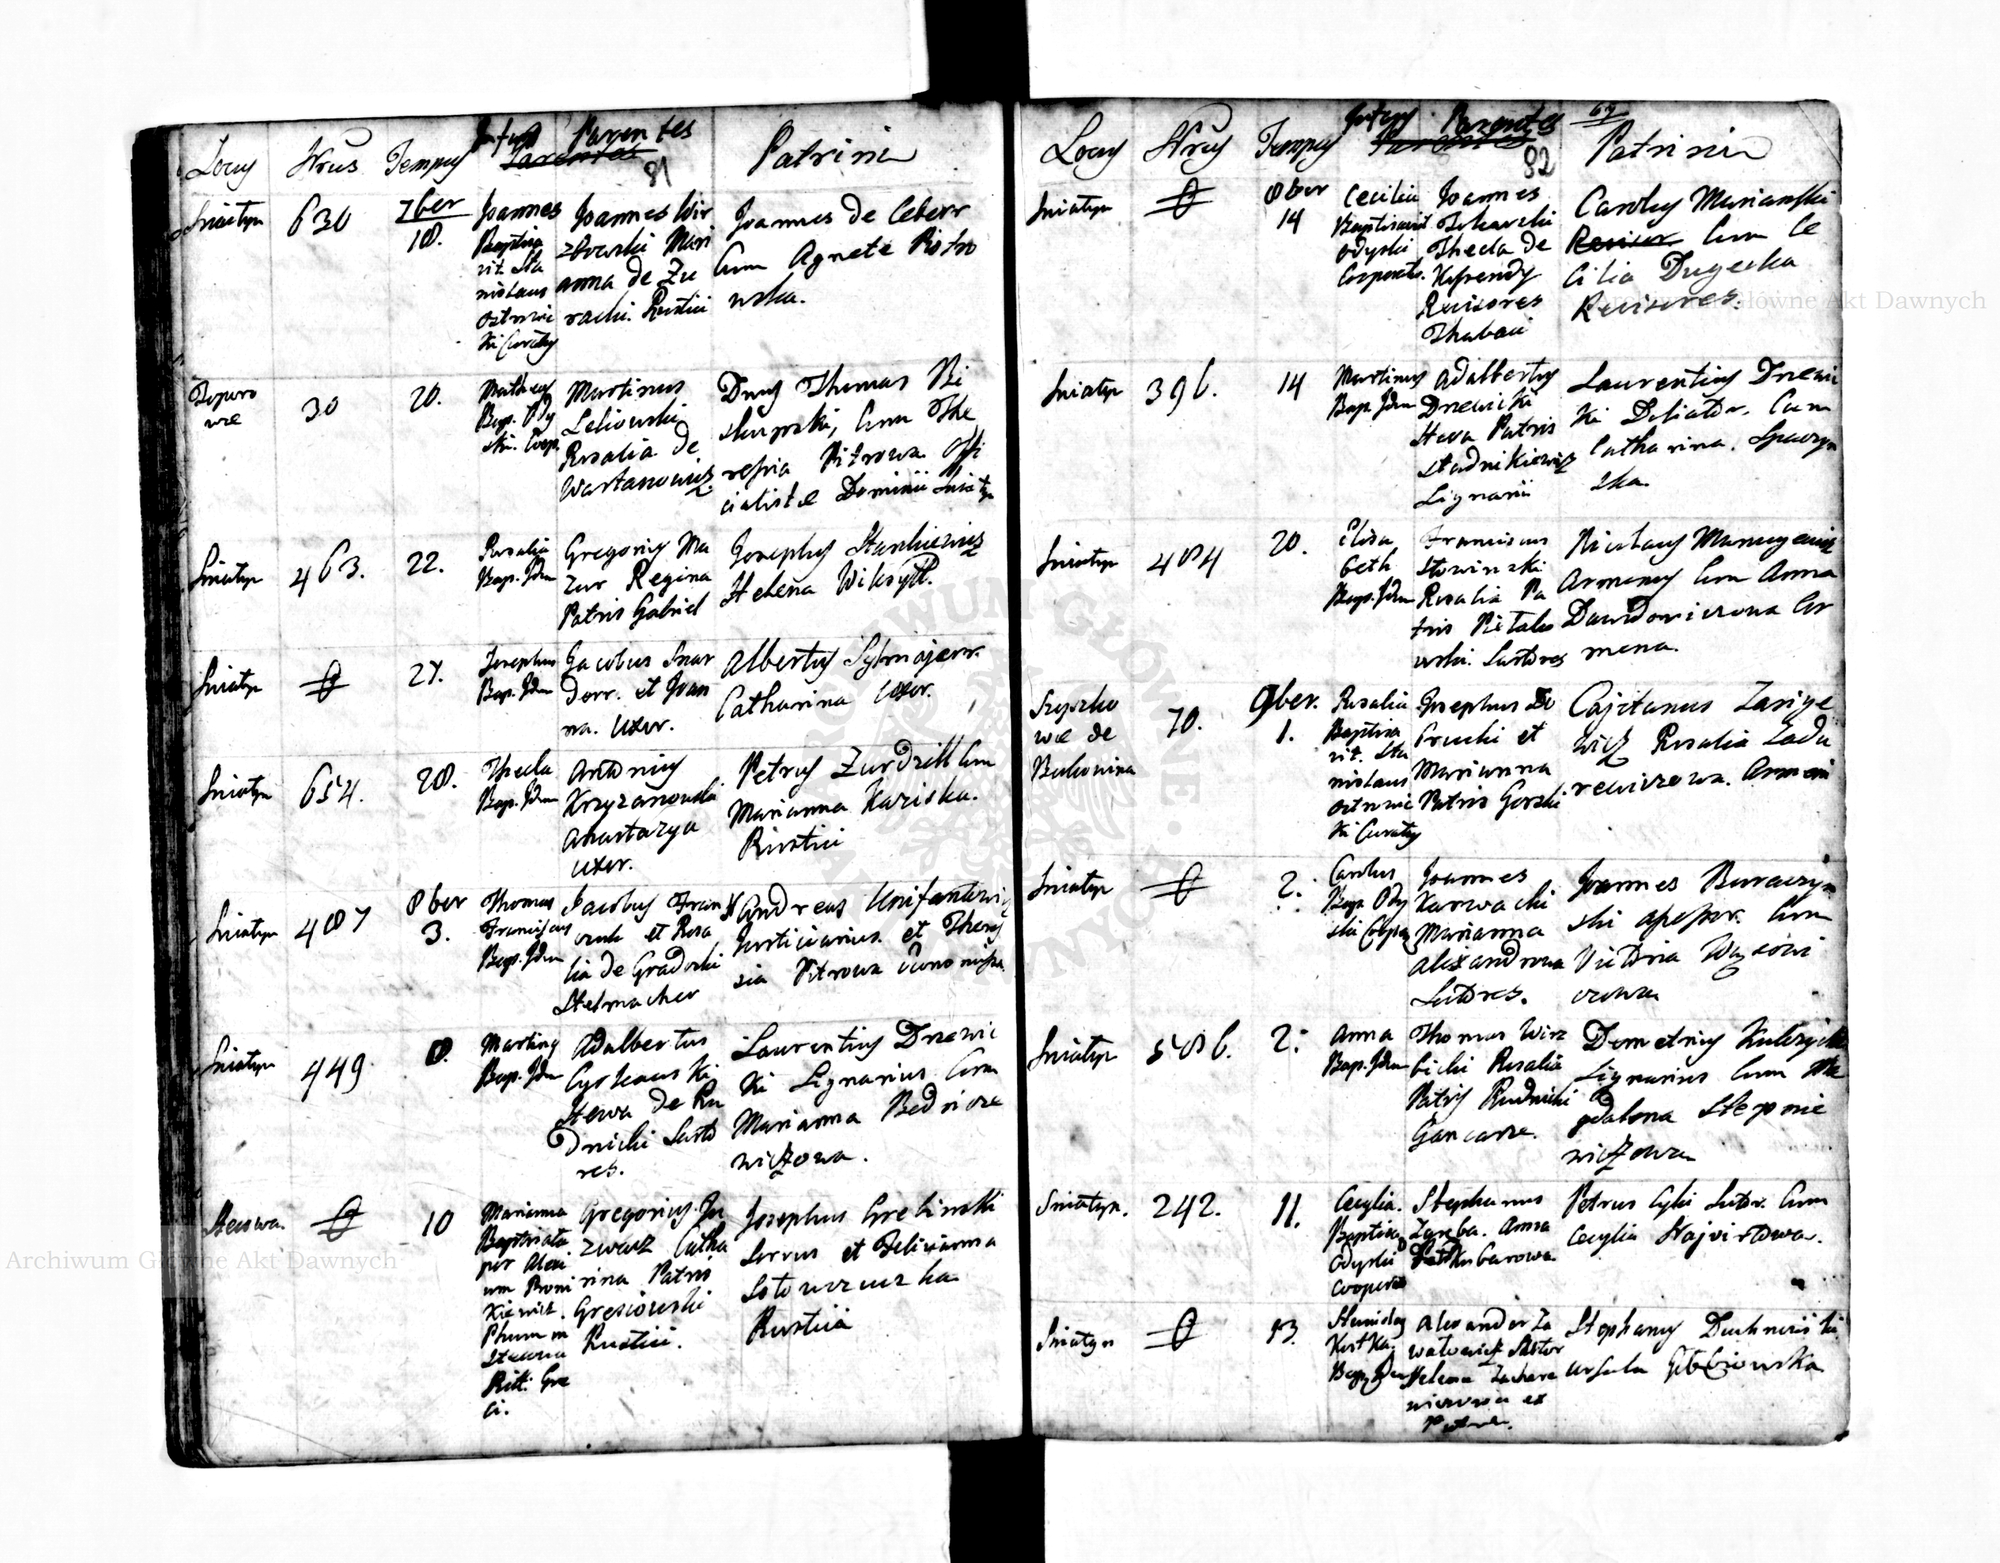 Locus Nrus Tempus Infans Parentes Patrini
Parentes
81
Sniatyn 630 7ber
18.
Joannes
Baptisa
vit. Sta
nislaus
Ostrowic
ki Curatus
Joannes Wir
zbowski Mari
anna de Zu
racki. Rustici
Joannes de Ceberr
Cum Agnete Piotro
wska.
Toporo
wce
30
20.
Matheus
Bap. Ody
ski. Coop.
Martinus
Lekowski
Rosalia de
Wartanowicz
Dnus Thomas Bi
skupski, Cum The
resia Pitrowa Offi
cialistæ Dominii Sniatyn
Sniatyn 463. 22.
Rosalia
Bap. Idem
Gregorius Ma
zur Regina
Patris Gabriel
Josephus Stankiewicz
Helena Wiksytt.
Sniatyn 27.
Josephus
Bap. Idem
Jacobus Snar
Derr. et Joan
na. Uxor.
Albertus Sylmajerr
Catharina Uxor.
Sniatyn 654. 28.
Thecla
Bap. Idem
Antonius
Krzyzanowski
Anastazya
uxor.
Petrus Zurdzill Cum
Marianna Kaziska.
Rustici
Sniatyn 487 8ber
3.
Thomas
Franciscus
Bap. Idem
Jacobus Fran
czuk et Rosa
lia de Gradocki
Stelmacher
Andreas Unifantowicz
Justiciarius et There
sia Pitrowa
Sniatyn 449 8.
Martinus
Bap. Idem
Adalbertus
Cyckowski
Hewa de Ru
Dnicki Sarto
res.
Laurentius Drzewic
ki Lignarius Cum
Marianna Bednicze
wiczowa.
Stecowa. 10
Marianna
Baptisata
per Alexi
um Proni
Kiewicz.
in
Stecowa
Ritt. Gre
ci.
Gregorius Ju
zwacz Catha
rina Patris
Gresiowski
Rustici.
Josephus Grebinski
Servus et Feliciana
Rustici
Locus Nrus Tempus Infans Parentes Patrini
Parentes
82
67
Sniatyn 8ber
14
Cecilia
Baptisavit
Odyski
Cooperator.
Joannes
Tokarski
Thecla de
Kefrendy
Revisores
Thabaci
Carolus Marianski
Revisor Cum Ce
Cilia Dugecka
Revisores.
Sniatyn 396. 14
Martinus
Bap. Idem
Adalbertus
Drzewicki
Heva Patris
Stadnikiewicz
Lignarii
Laurentius Drzewic
Ki Doliator. Cum
Catharina.
zka.
Sniatyn 484 20.
Elisa
beth
Bap. Idem
Franciscus
Slowinski
Rosalia Pa
tris Pietako
wski. Sartores
Nicolaus Manugiewicz
Armenus Cum Anna
Dawidowiczowa Ar
mena.
Szyszko
wce de
Bukowina
70.
9ber.
1.
Rosalia
Baptisa
vit. Sta
nislaus
Ostrowic
ki Curatus
Josephus Do
brucki et
Marianna
Patris Gorski
Cajetanus Zarige
wicz Rosalia Zadu
rewiczowa. Armeni
Sniatyn 2.
Carolus
Bap. Ody
ski Cooper
Joannes
Karwacki
Marianna
Alexandrowa
Sutores.
Joannes Buraczyn
ski assessor. Cum
Victoria
czowa
Sniatyn 586. 2.
Anna
Bap. Idem
Thomas Wirz
bicki Rosalia
Patris Rudnicki
Gancarze.
Demetrius Kulczycki
Lignarius Cum Ma
gdalena Stepnie
wiczowa
Sniatyn. 242. 11.
Cecylia.
Baptisa
Odyski
Cooperat
Stephanus
Zareba. Anna
Petrus Cybi Sutor. Cum
Cecylia Najvirtowa.
Sniatyn 13.
Stanislaus
Kostka.
Bap. Idem
Alexander Za
watowicz Sutor
Helena Zachare
wiczowa ex
Patre.
Stephanus Duchniewicki
Ursula Gebbiowska
Archiwum Główne Akt Dawnych
Archiwum Główne Akt Dawnych
ARCHIWUM GŁÓWNE AKT DAWNYCH